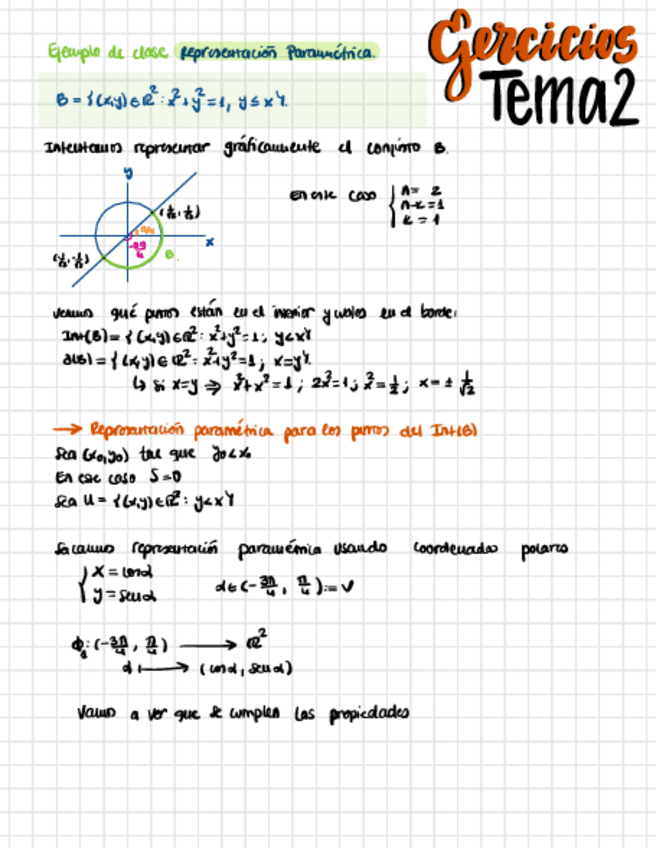 Ejercicios
Tema 2
Ejemplo de clase representación Paramétrica.
B = {(x,y) ∈ ℝ² : x²+y²=1, y ≤ x}.
Intentamos representar gráficamente el conjunto B.
y
(1/√2, 1/√2)
π/4
x
-3π/4
B
(-1/√2, -1/√2)
En este caso { n = 2
n-k = 1
k = 1
Veamos qué puntos están en el interior y cuales en el borde:
Int(B) = {(x,y) ∈ ℝ² : x²+y²=1; y<x}
∂(B) = {(x,y) ∈ ℝ² : x²+y²=1; x=y}.
↳ si x=y ⇒ x²+x²=1; 2x²=1; x²=1/2; x=± 1/√2
→ Representación paramétrica para los puntos del Int(B)
Sea (x₀,y₀) tal que y₀<x₀
En ese caso S=0
Sea U = {(x,y) ∈ ℝ² : y<x}
Sacamos representación paramétrica usando coordenadas polares
{ x = cosα
y = senα
α ∈ (-3π/4, π/4) := V
ϕ₁: (-3π/4, π/4) ⟶ ℝ²
α ⟼ (cosα, senα)
Vamos a ver que se cumplen las propiedades